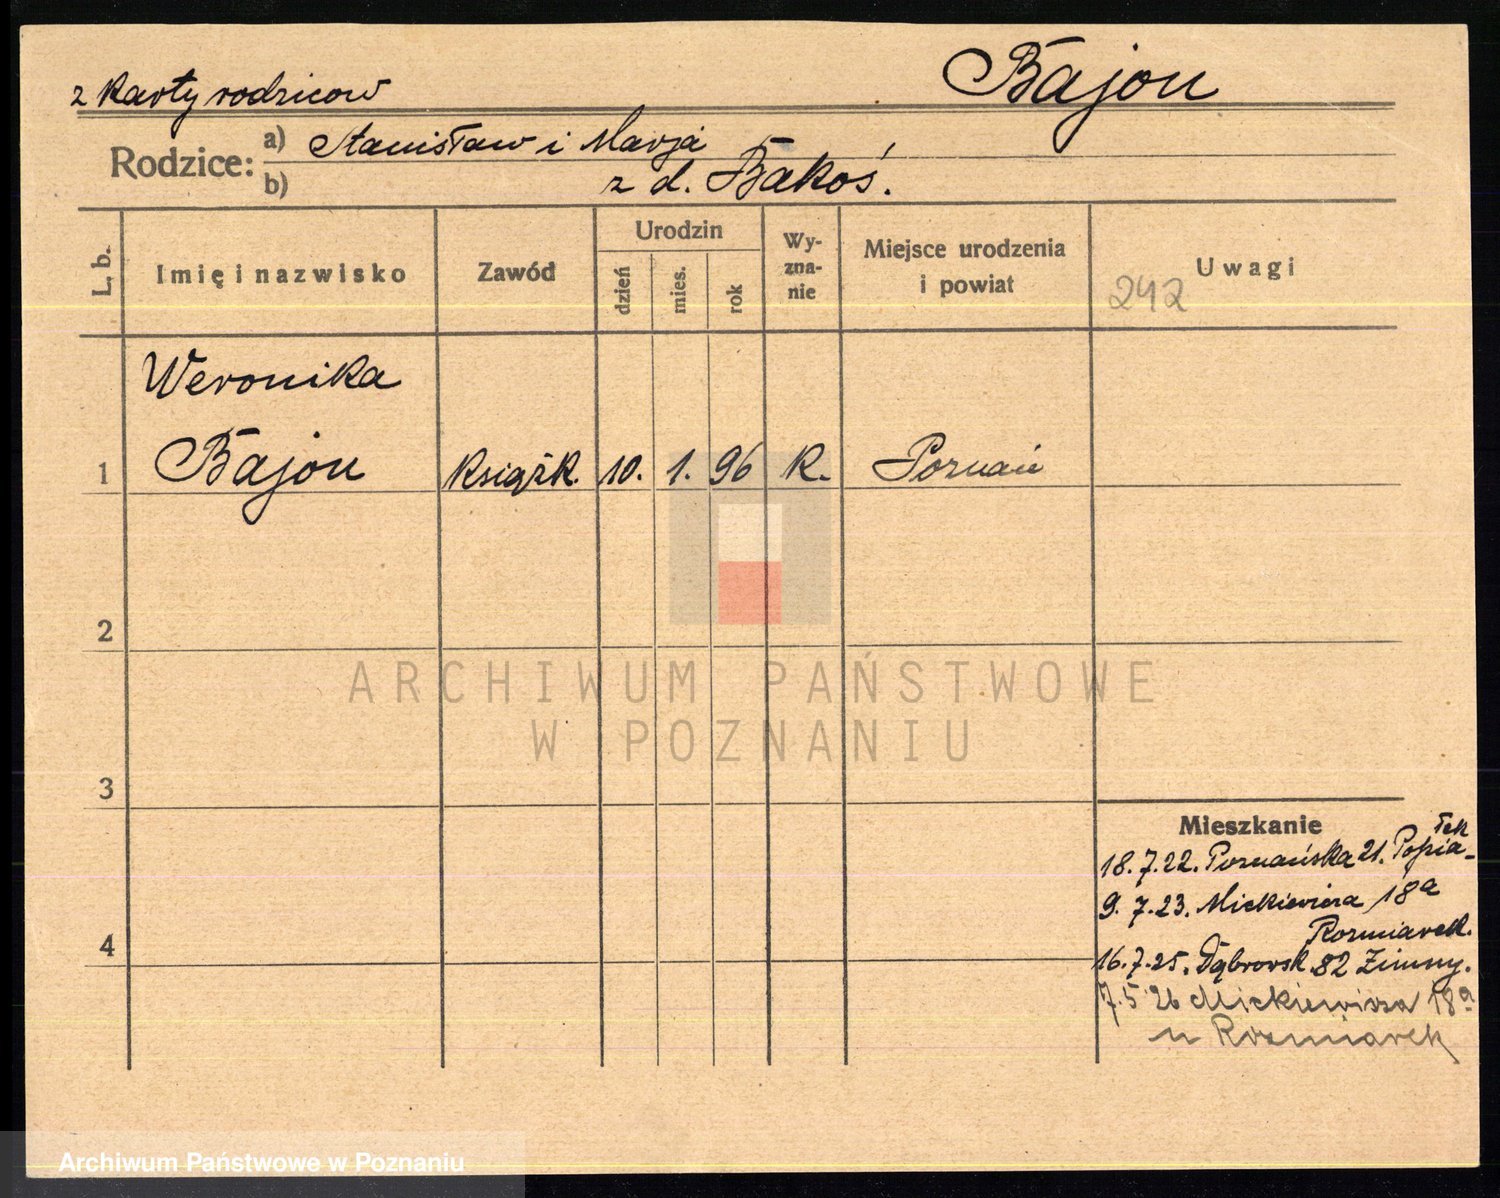 Bajon
z karty rodziców
Rodzice: a) Stanisław i Marja
b) z d. Bakoś.
L. b. Imię i nazwisko Zawód Urodzin dzień mies. rok Wyznanie Miejsce urodzenia i powiat Uwagi
242
Weronika
1 Bajon książk. 10. 1. 96 K. Poznań
2
3
4
Mieszkanie
18.7.22. Poznańska 21. Popiałek
9.7.23. Mickiewicza 18a
Rozmiarek.
16.7.25. Dąbrowsk. 82 Zimny.
7.5 26 Mickiewicza 18a
u Rozmiarek
ARCHIWUM PAŃSTWOWE
W POZNANIU
Archiwum Państwowe w Poznaniu